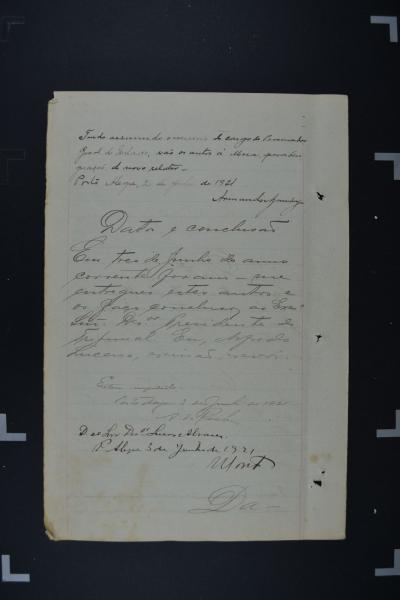 Tendo assumido o exercicio do cargo de Procurador
Geral do Estado, vão os autos á Mesa para desi
gnação de novo relator.
Porto Alegre, 2 de Junho de 1921
Armando
Data e conclusão
Em tres de Junho do anno
corrente foram-me
entregues estes autos e
os faço conclusos ao Exmº
Snr. Desor Presidente do
Tribunal. Eu, Alfredo
Lucena, escrivão, escrevi.
Porto Alegre 3 de Junho de 1921
D. ao Snr. Desor
P. Alegre 3 de Junho de 1921
Da-